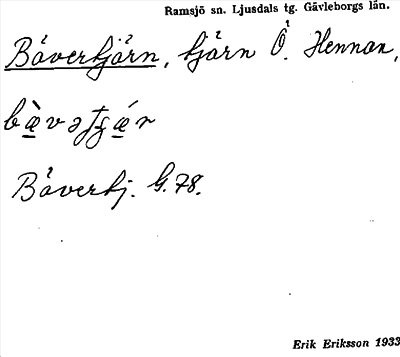 Ramsjö sn. Ljusdals tg. Gävleborgs län.
Bävertjärn, tjärn Ö. Hennan,
Bävertj. G. 78.
Erik Eriksson 1933